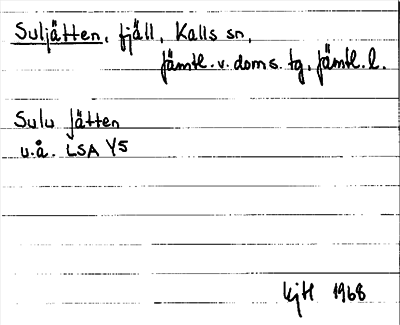 Suljätten, fjäll, Kalls sn,
Jämtl. v. doms. tg, Jämtl. l.
Sulu Jätten
u.å. LSA Y5
KjH 1968